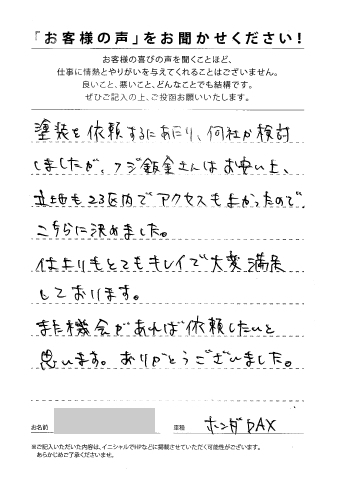 「お客様の声」をお聞かせください！
お客様の喜びの声を聞くことほど、
仕事に情熱とやりがいを与えてくれることはございません。
良いこと、悪いこと、どんなことでも結構です。
ぜひご記入の上、ご投函お願いいたします。
塗装を依頼するにあたり、何社か検討
しましたが、フジ鈑金さんはお安い上、
立地も23区内でアクセスもよかったので、
こちらに決めました。
仕上りもとてもキレイで大変満足
しております。
また機会があれば依頼したいと
思います。ありがとうございました。
お名前
車種 ホンダ DAX
※ご記入いただいた内容は、イニシャルでHPなどに掲載させていただく可能性がございます。
あらかじめご了承くださいませ。